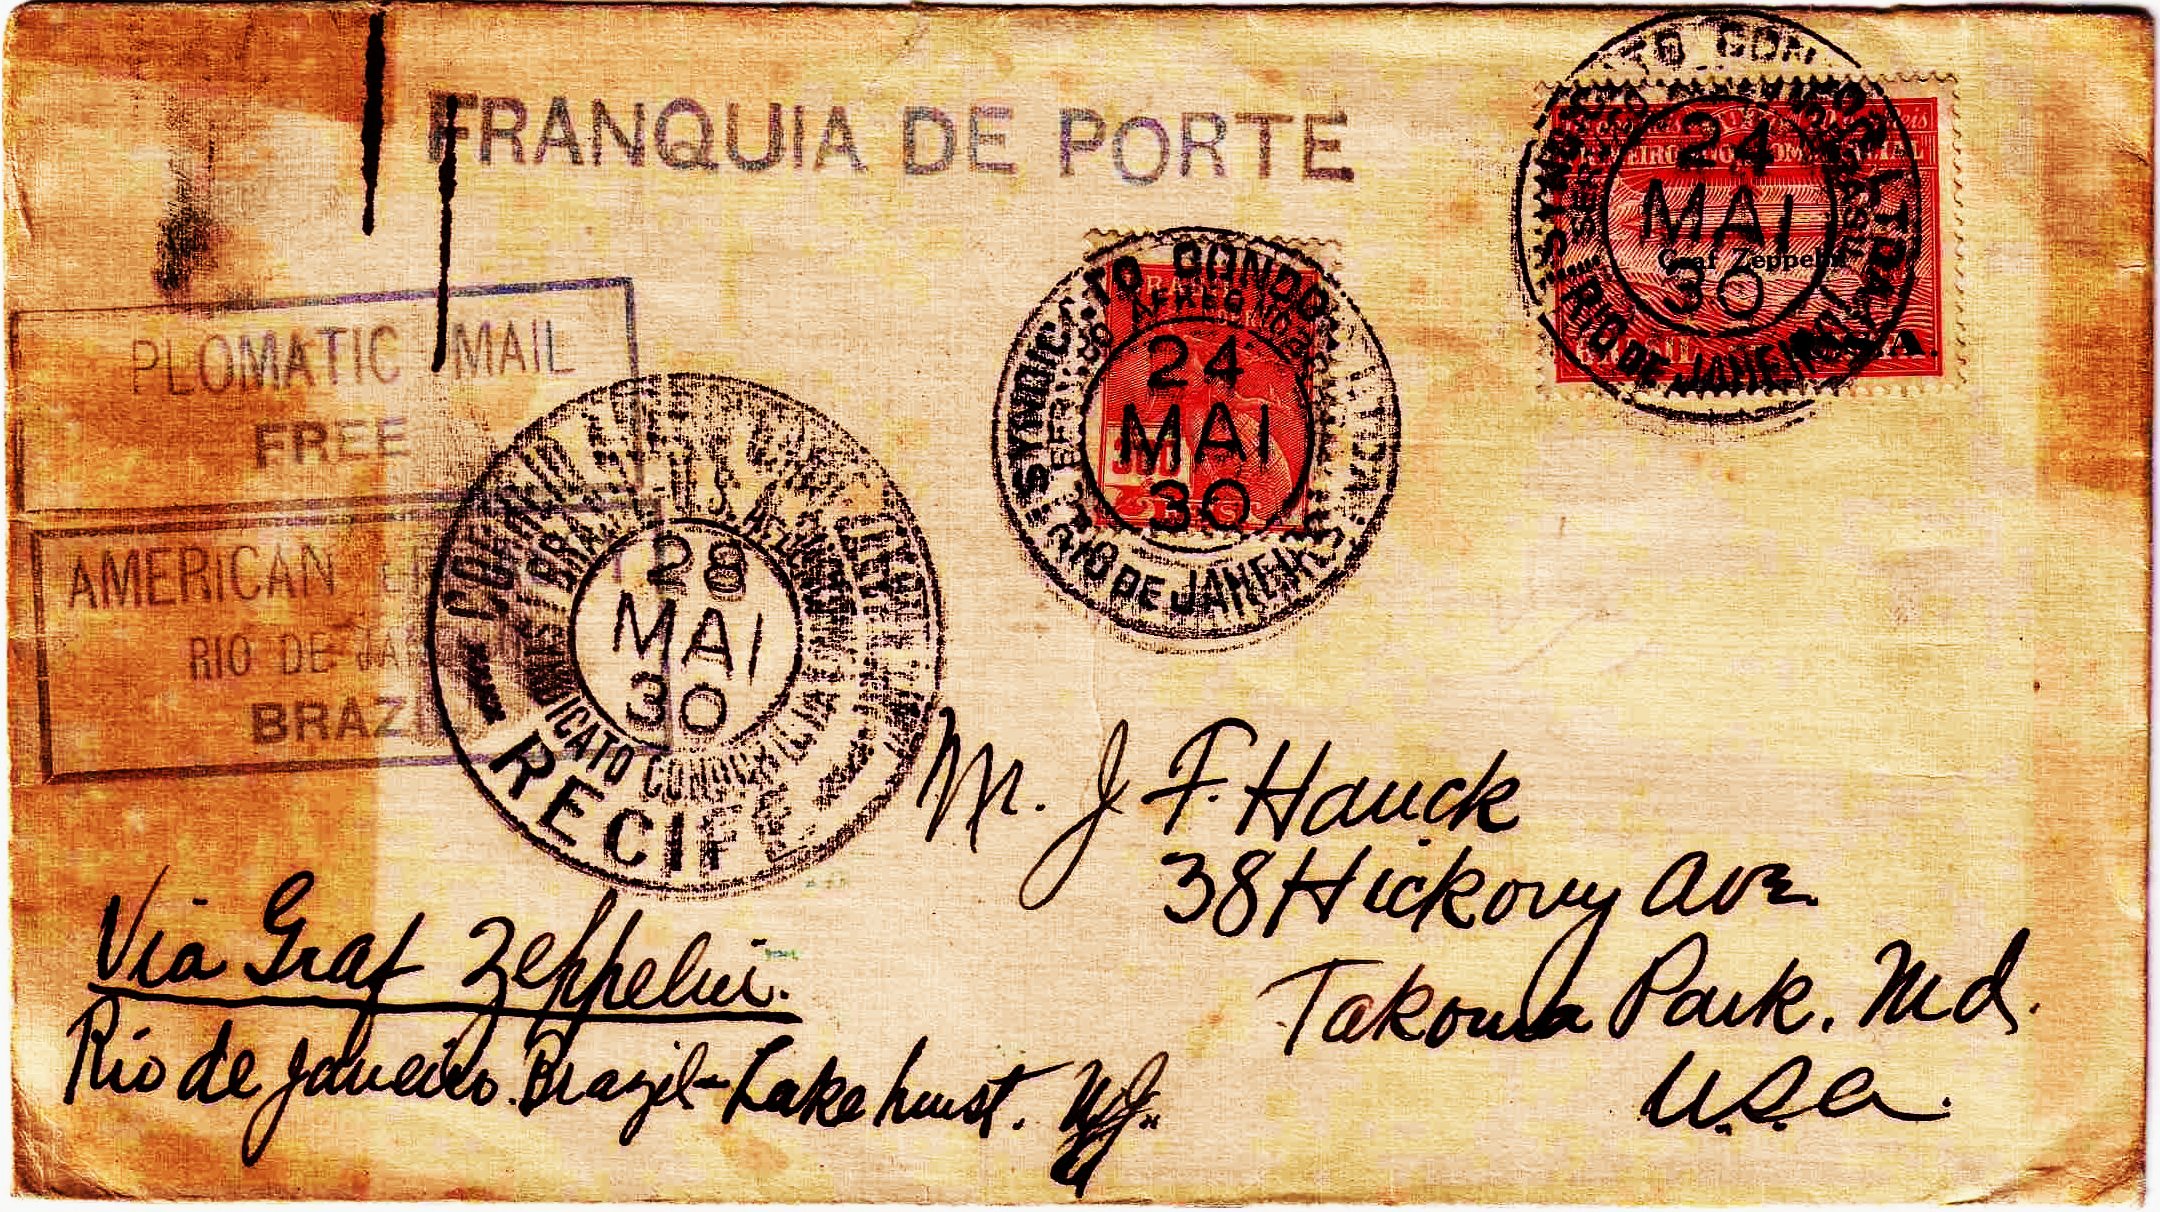 FRANQUIA DE PORTE
PLOMATIC MAIL
FREE
AMERICAN
RIO DE JA
BRAZI
SYNDICATO CONDOR LTDA.
24
MAI
30
RIO DE JANEIRO
Graf Zeppelin
SYNDICATO CONDOR LTDA.
SERVIÇO AEREO
24
MAI
30
RIO DE JANEIRO
300
CORREIO
28
MAI
30
SYNDICATO CONDOR
RECIFE
Mr. J F. Hauck
38 Hickory Ave
Takoma Park. Md.
U.S.a.
Via Graf Zeppelin.
Rio de Janeiro. Brazil - Lakehurst. N.J.